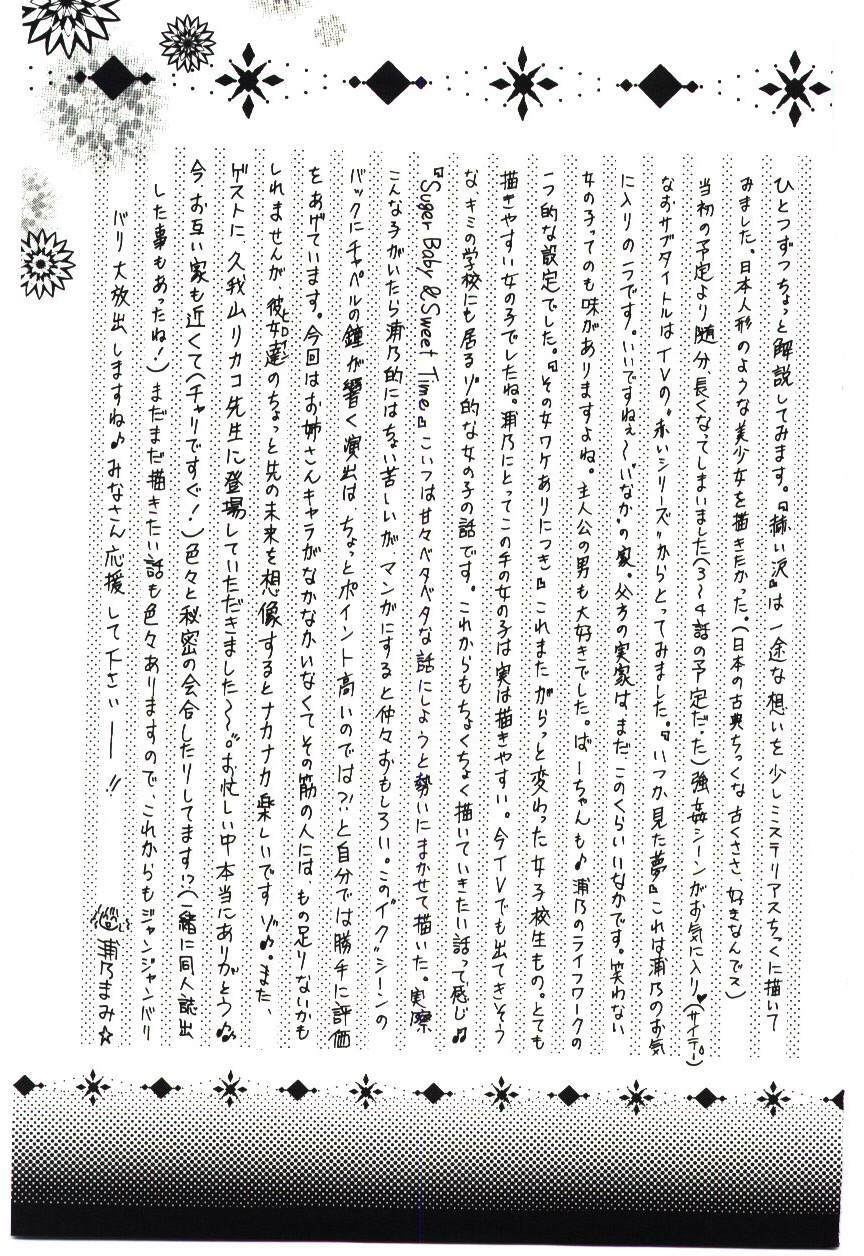 ひとつずつちょっと解説してみます。『赫い沢』は一途な想いを少しミステリアスちっくに描いて
みました。日本人形のような美少女を描きたかった。(日本の古典ちっくな古くささ、好きなんでス)
当初の予定より随分長くなってしまいました(3〜4話の予定だった)強姦シーンがお気に入り♥(サイテ。)
なおサブタイトルはTVの“赤いシリーズ”からとってみました。『いつか見た夢』これは浦乃のお気
に入りの一つです。いいですねぇ〜“いなか”の家。父方の実家は、まだこのくらいいなかです。笑わない
女の子ってのも味がありますよね。主人公の男も大好きでした。ばーちゃんも♪浦乃のライフワークの
一つ的な設定でした。『その女ワケありにつき』これまたがらっと変わった女子校生もの。とても
描きやすい女の子でしたね。浦乃にとってこの手の女の子は実は描きやすい。今TVでも出てきそう
な、キミの学校にも居るゾ的な女の子の話です。これからもちょくちょく描いていきたい話って感じ♫
『Suger Baby & Sweet Time』こいつは甘々ベタベタな話にしようと勢いにまかせて描いた。実際
こんな子がいたら浦乃的にはちょい苦しいがマンガにすると仲々おもしろい。この“イク”シーンの
バックにチャペルの鐘が響く演出は、ちょっとポイント高いのでは?!と自分では勝手に評価
をあげています。今回はお姉さんキャラがなかなかいなくてその筋の人には、もの足りないかも
しれませんが、彼女達(ヒロイン)のちょっと先の未来を想像するとナカナカ楽しいですゾ♪。また、
ゲストに久我山リカコ先生に登場していただきました〜〜。お忙しい中本当にありがとう♫
今お互い家も近くて(チャリですぐ!)色々と秘密の会合したりしてます!?(一緒に同人誌出
した事もあったね!)まだまだ描きたい話も色々ありますので、これからもジャンジャンバリ
バリ大放出しますね♪みなさん応援して下さいーー!!
浦乃まみ☆